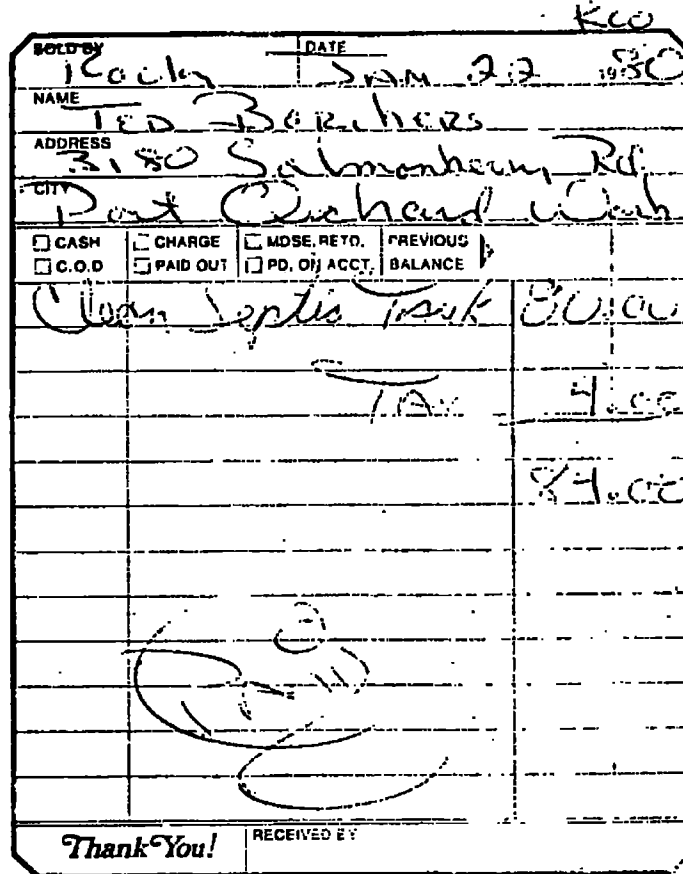 KCO
SOLD BY DATE
Rocky Jan 22 1980
NAME
Ted Borchers
ADDRESS
3180 Salmonberry Rd.
CITY
Port Orchard Wash
CASH CHARGE MDSE, RETD. PREVIOUS
C.O.D PAID OUT PD. ON ACCT. BALANCE
Clean Septic Tank 80.00
TAX 4.00
84.00
Thank You! RECEIVED BY